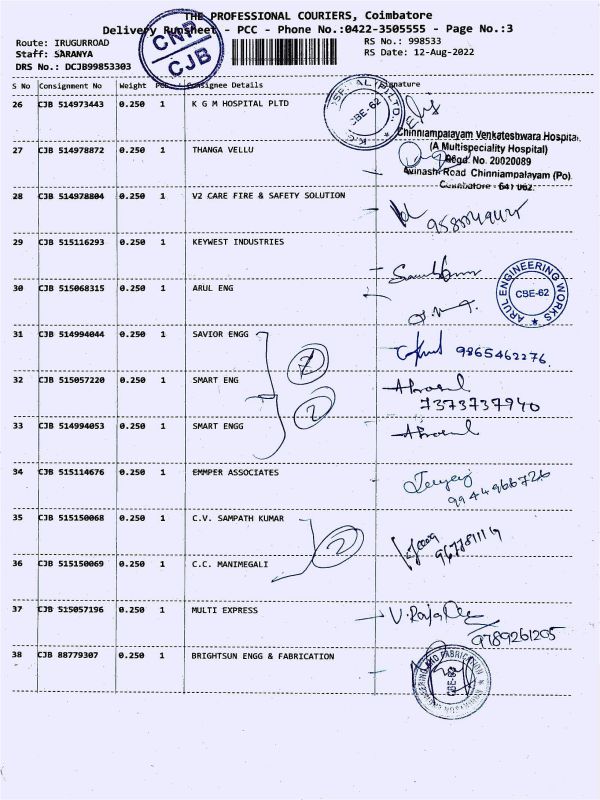 THE PROFESSIONAL COURIERS, Coimbatore
Delivery Runsheet - PCC - Phone No.:0422-3505555 - Page No.:3
Route: IRUGURROAD RS No.: 998533
Staff: SARANYA RS Date: 12-Aug-2022
DRS No.: DCJB99853303
CNP
CJB
S No Consignment No Weight PCS Consignee Details Signature
26 CJB 514973443 0.250 1 K G M HOSPITAL PLTD
CBE-62
Chinniampalayam Venkateshwara Hospital,
(A Multispeciality Hospital)
27 CJB 514978872 0.250 1 THANGA VELLU
Regd. No. 20020089
Avinash Road Chinniampalayam (Po).
Coimbatore - 641 062.
28 CJB 514978804 0.250 1 V2 CARE FIRE & SAFETY SOLUTION
29 CJB 515116293 0.250 1 KEYWEST INDUSTRIES
30 CJB 515068315 0.250 1 ARUL ENG
ARUL ENGINEERING WORKS
CBE-62
31 CJB 514994044 0.250 1 SAVIOR ENGG
9865462276
32 CJB 515057220 0.250 1 SMART ENG
2
7373737940
33 CJB 514994053 0.250 1 SMART ENGG
34 CJB 515114676 0.250 1 EMMPER ASSOCIATES
9944966726
35 CJB 515150068 0.250 1 C.V. SAMPATH KUMAR
2
36 CJB 515150069 0.250 1 C.C. MANIMEGALI
37 CJB 515057196 0.250 1 MULTI EXPRESS
9789261205
38 CJB 88779307 0.250 1 BRIGHTSUN ENGG & FABRICATION
CBE-62